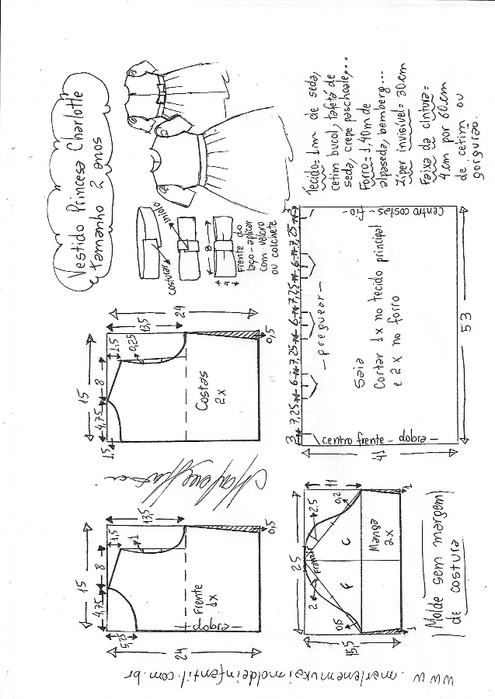 Vestido Princesa Charlotte
tamanho 2 anos
costura
início
8
4
frente do
laço - aplicar
com velcro
ou colchete
Tecido = 1m de seda,
cetim bucol, tafetá de
seda, crepe paschoale,...
Forro = 1,40m de
alpaseda, bemberg...
Zíper invisível = 30cm
Faixa da cintura =
4cm por 60cm
de cetim ou
gorgurão.
15
4,75
8
1,5
1,5
0,25
13,5
24
0,5
Costas
2x
3
7,25
6
7,25
6
7,25
6
7,25
3
preguear
Saia
Cortar 1x no tecido principal
e 2x no forro
centro frente - dobra
Centro costas - fio
41
53
15
4,75
8
1,5
1
13,5
5,25
24
0,5
Frente
1x
dobra
25
11
2,5
0,2
2
frente
F
C
Manga
2x
0,6
15,5
1
1
Molde sem margem
de costura
www.marlenemukaimoldeinfantil.com.br